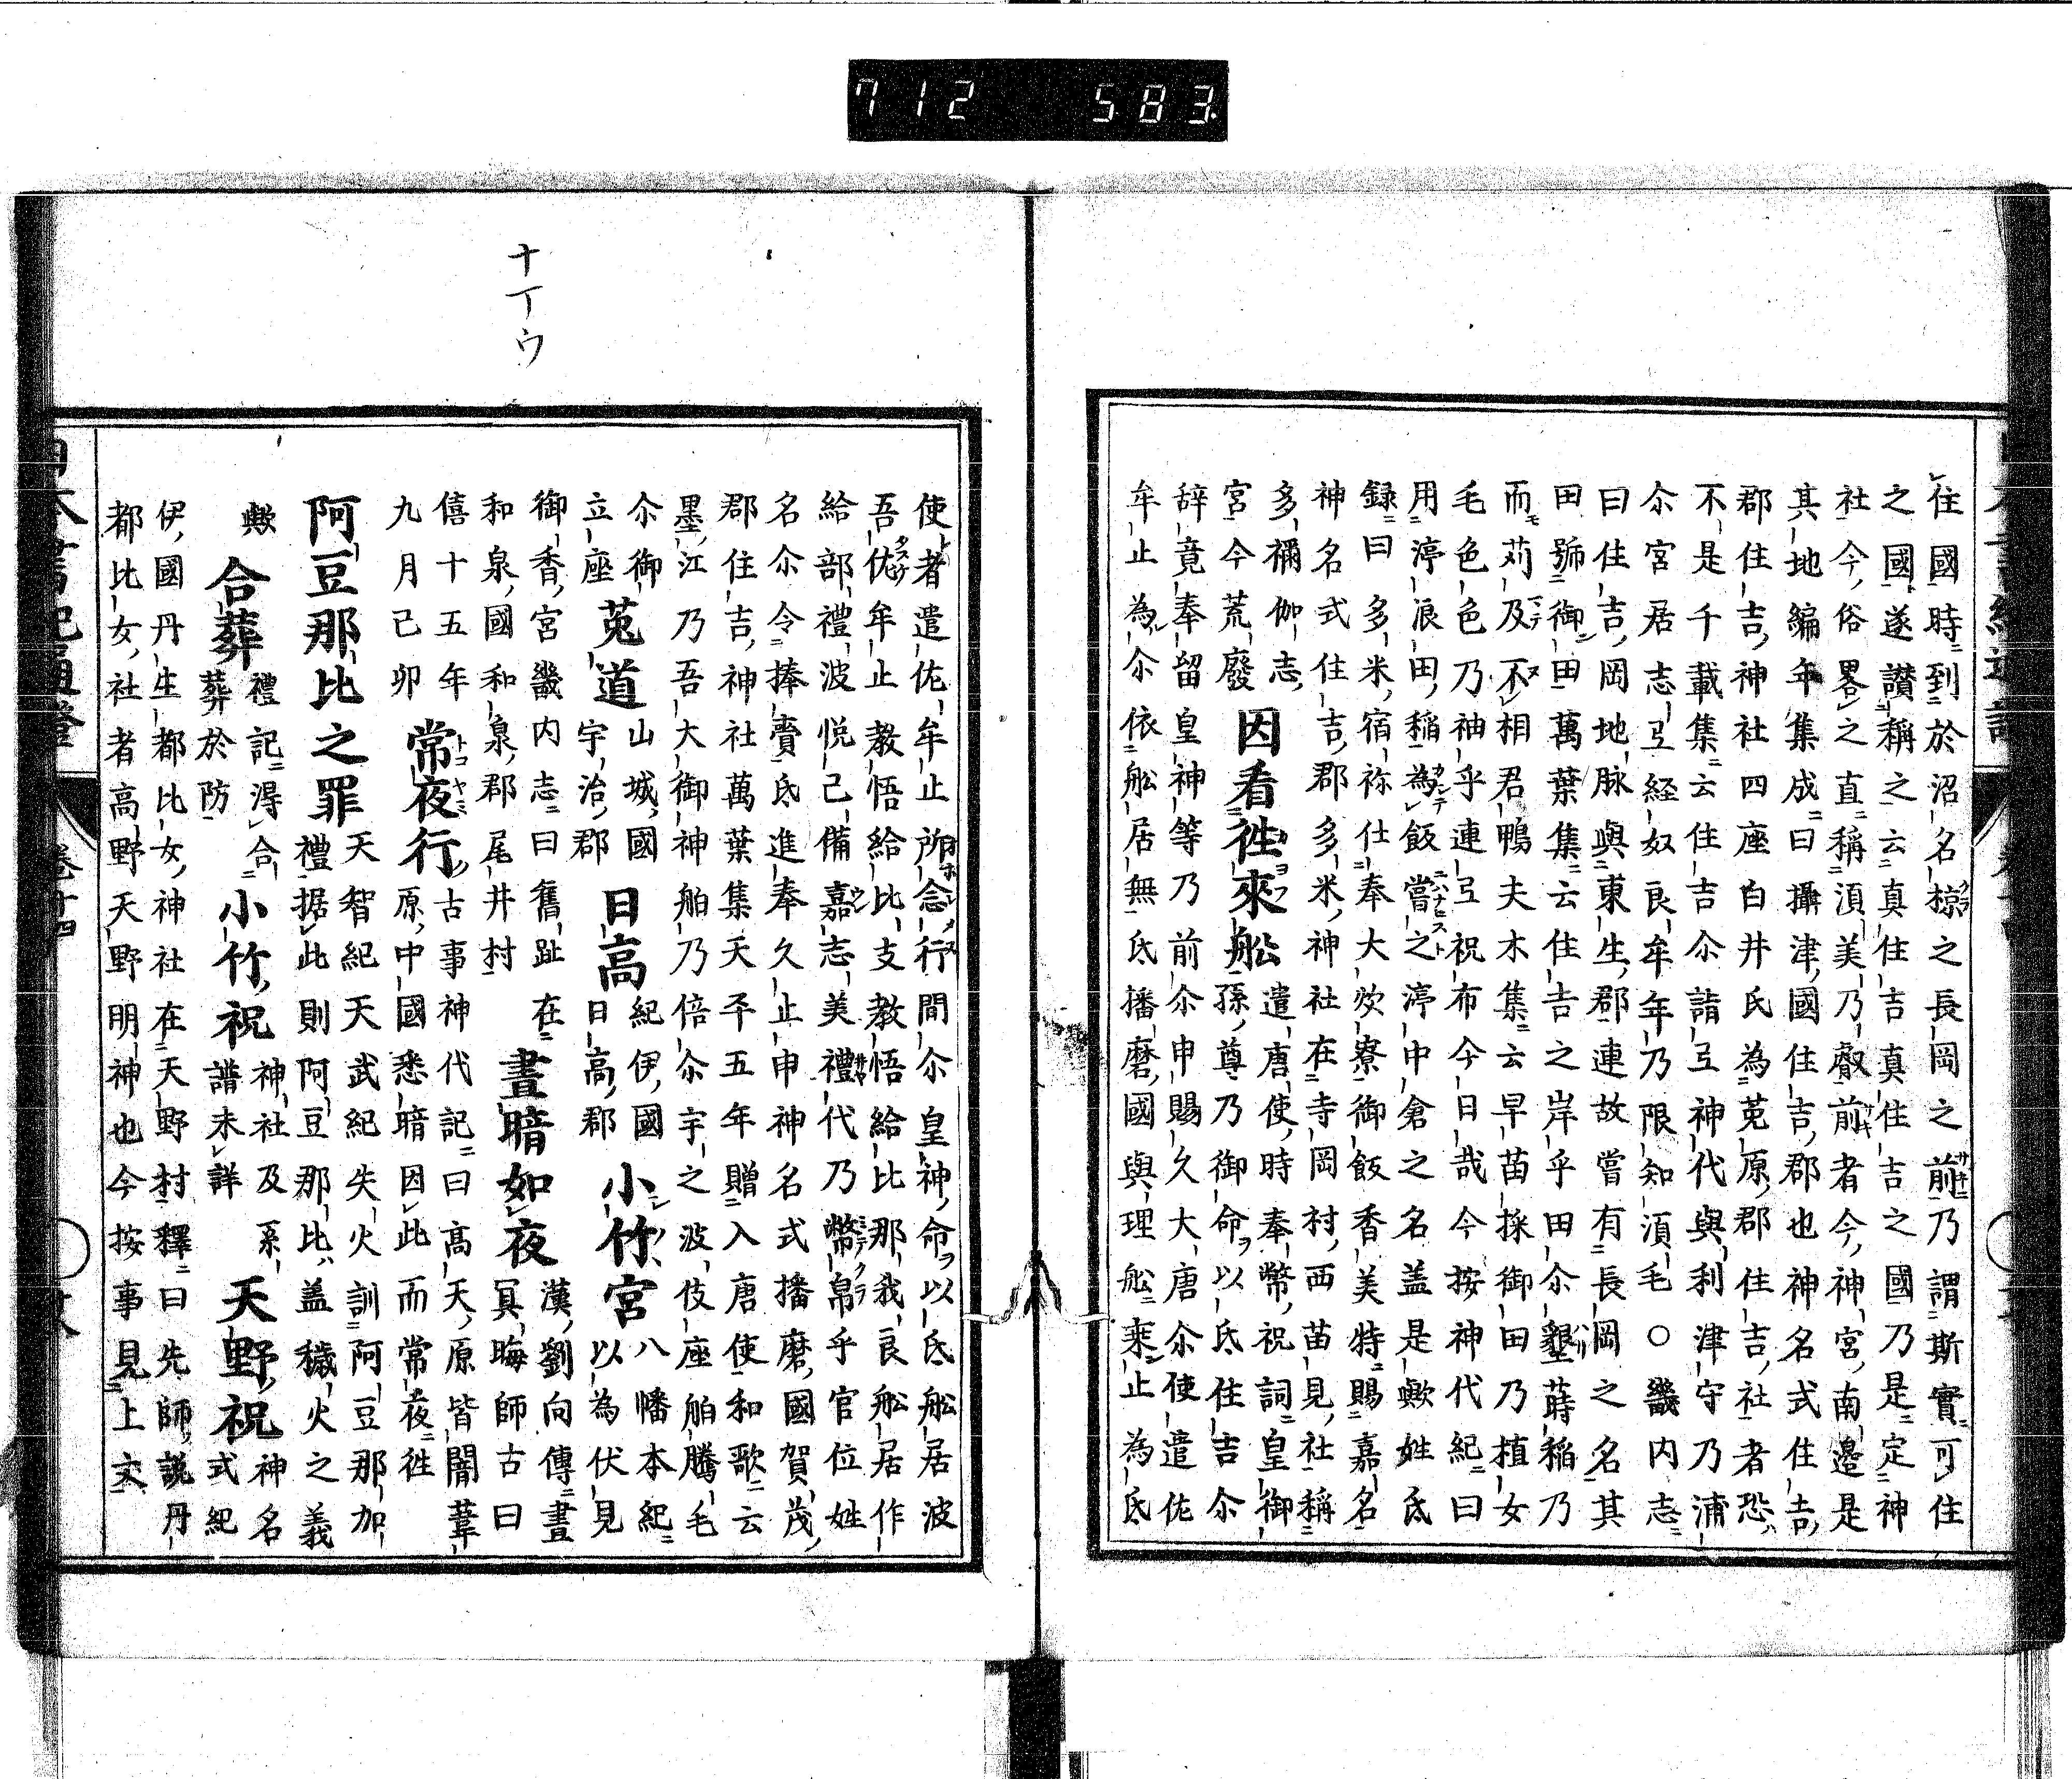 住國時到於沼名椋之長岡之前乃謂斯實可住
之國遂讃稱之云真住吉真住吉之國乃是定神
社今俗畧之直稱湏美乃叡前者今神宮南邊是
其地編年集成曰攝津國住吉郡也神名式住吉
郡住吉神社四座白井氏為菟原郡住吉社者恐
不是千載集云住吉尒詣弖神代與利津守乃浦
尒宮居志弖経奴良牟年乃限知湏毛○畿内志
曰住吉岡地脉與東生郡連故嘗有長岡之名其
田號御田萬葉集云住吉之岸乎田尒墾蒔稲乃
而苅及不相君鴨夫木集云早苗採御田乃植女
毛色色乃袖乎連弖祝布今日哉今按神代紀曰
用渟浪田稲為飯嘗之渟中倉之名盖是歟姓氏
録曰多米宿祢仕奉大炊寮御飯香美特賜嘉名
神名式住吉郡多米神社在寺岡村西苗見社稱
多禰伽志 遣唐使時奉幣祝詞皇御
宮今荒廢 因看徃來船 孫尊乃御命以氐住吉尒
辞竟奉留皇神等乃前尒申賜久大唐尒使遣佐
牟止為尒依舩居無氐播磨國與理舩乘止為氐
十丁ウ
使者遣佐牟止所念行間尒皇神命以氐舩居波
吾佐牟止教悟給比支教悟給比那我良舩居作
給部禮波悦己備嘉志美禮代乃幣帛乎官位姓
名尒令捧賷氐進奉久止申神名式播磨國賀茂
郡住吉神社萬葉集天平五年贈入唐使和歌云
墨江乃吾大御神舶乃倍尒宇之波伎座舶騰毛
尒御 立座 菟道 山城國 宇治郡 日高 紀伊國 日高郡 小竹宮 八幡本紀 以為伏見
御香宮畿内志曰舊趾在 和泉國和泉郡尾井村 晝暗如夜 漢劉向傳晝 冥晦師古曰
僖十五年 九月己卯 常夜行 古事神代記曰高天原皆闇葦 原中國悉暗因此而常夜徃
阿豆那比之罪 天智紀天武紀失火訓阿豆那加 禮据此則阿豆那比盖穢火之義
歟 合葬 禮記淂合 葬於防 小竹祝 神社及系 譜未詳 天野祝 神名 式紀
伊國丹生都比女神社在天野村釋曰先師説丹
都比女社者高野天野明神也今按事見上文